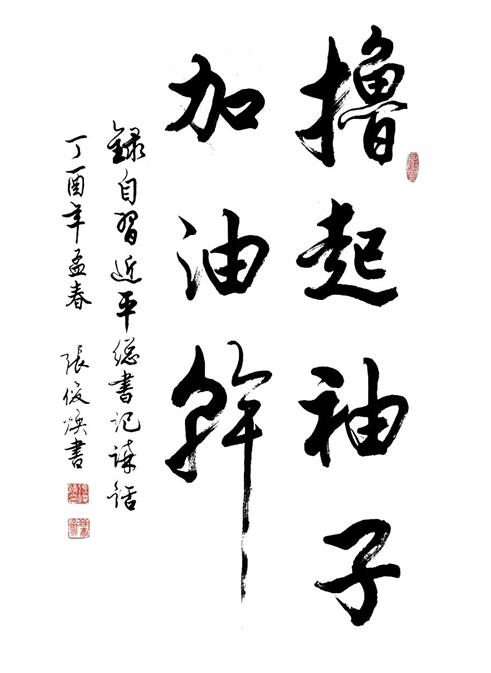 撸起袖子
加油幹
録自習近平總書記講話
丁酉年孟春 張俊煥書